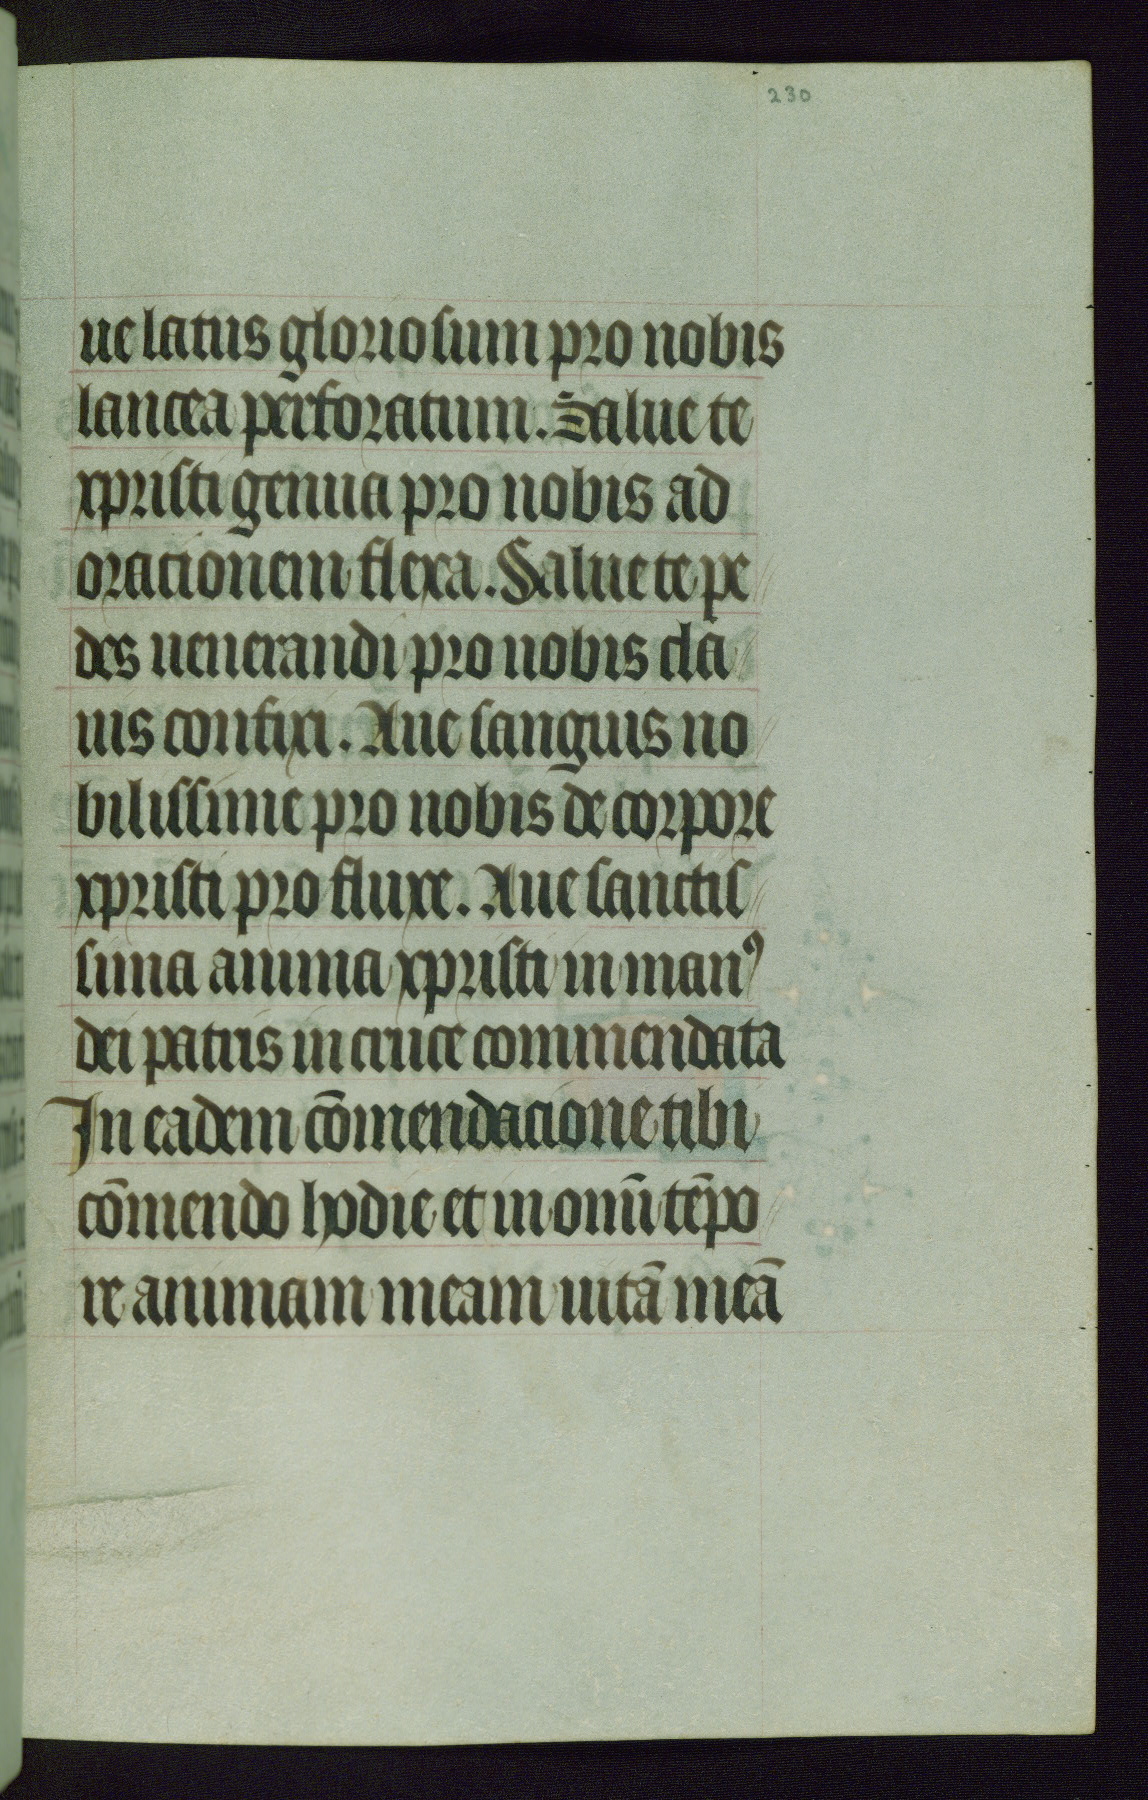 230
ue latus gloriosum pro nobis
lancea perforatum. Saluete
xpristi genua pro nobis ad
orationem flexa. Saluete pe
des uenerandi pro nobis cla
uis confixi. Aue sanguis no
bilissime pro nobis de corpore
xpristi pro fluxe. Aue sanctis
sima anima xpristi in manꝰ
dei patris in cruce commendata
In eadem cōmendacione tibi
cōmendo hodie et in omī tēpo
re animam meam uitā meā